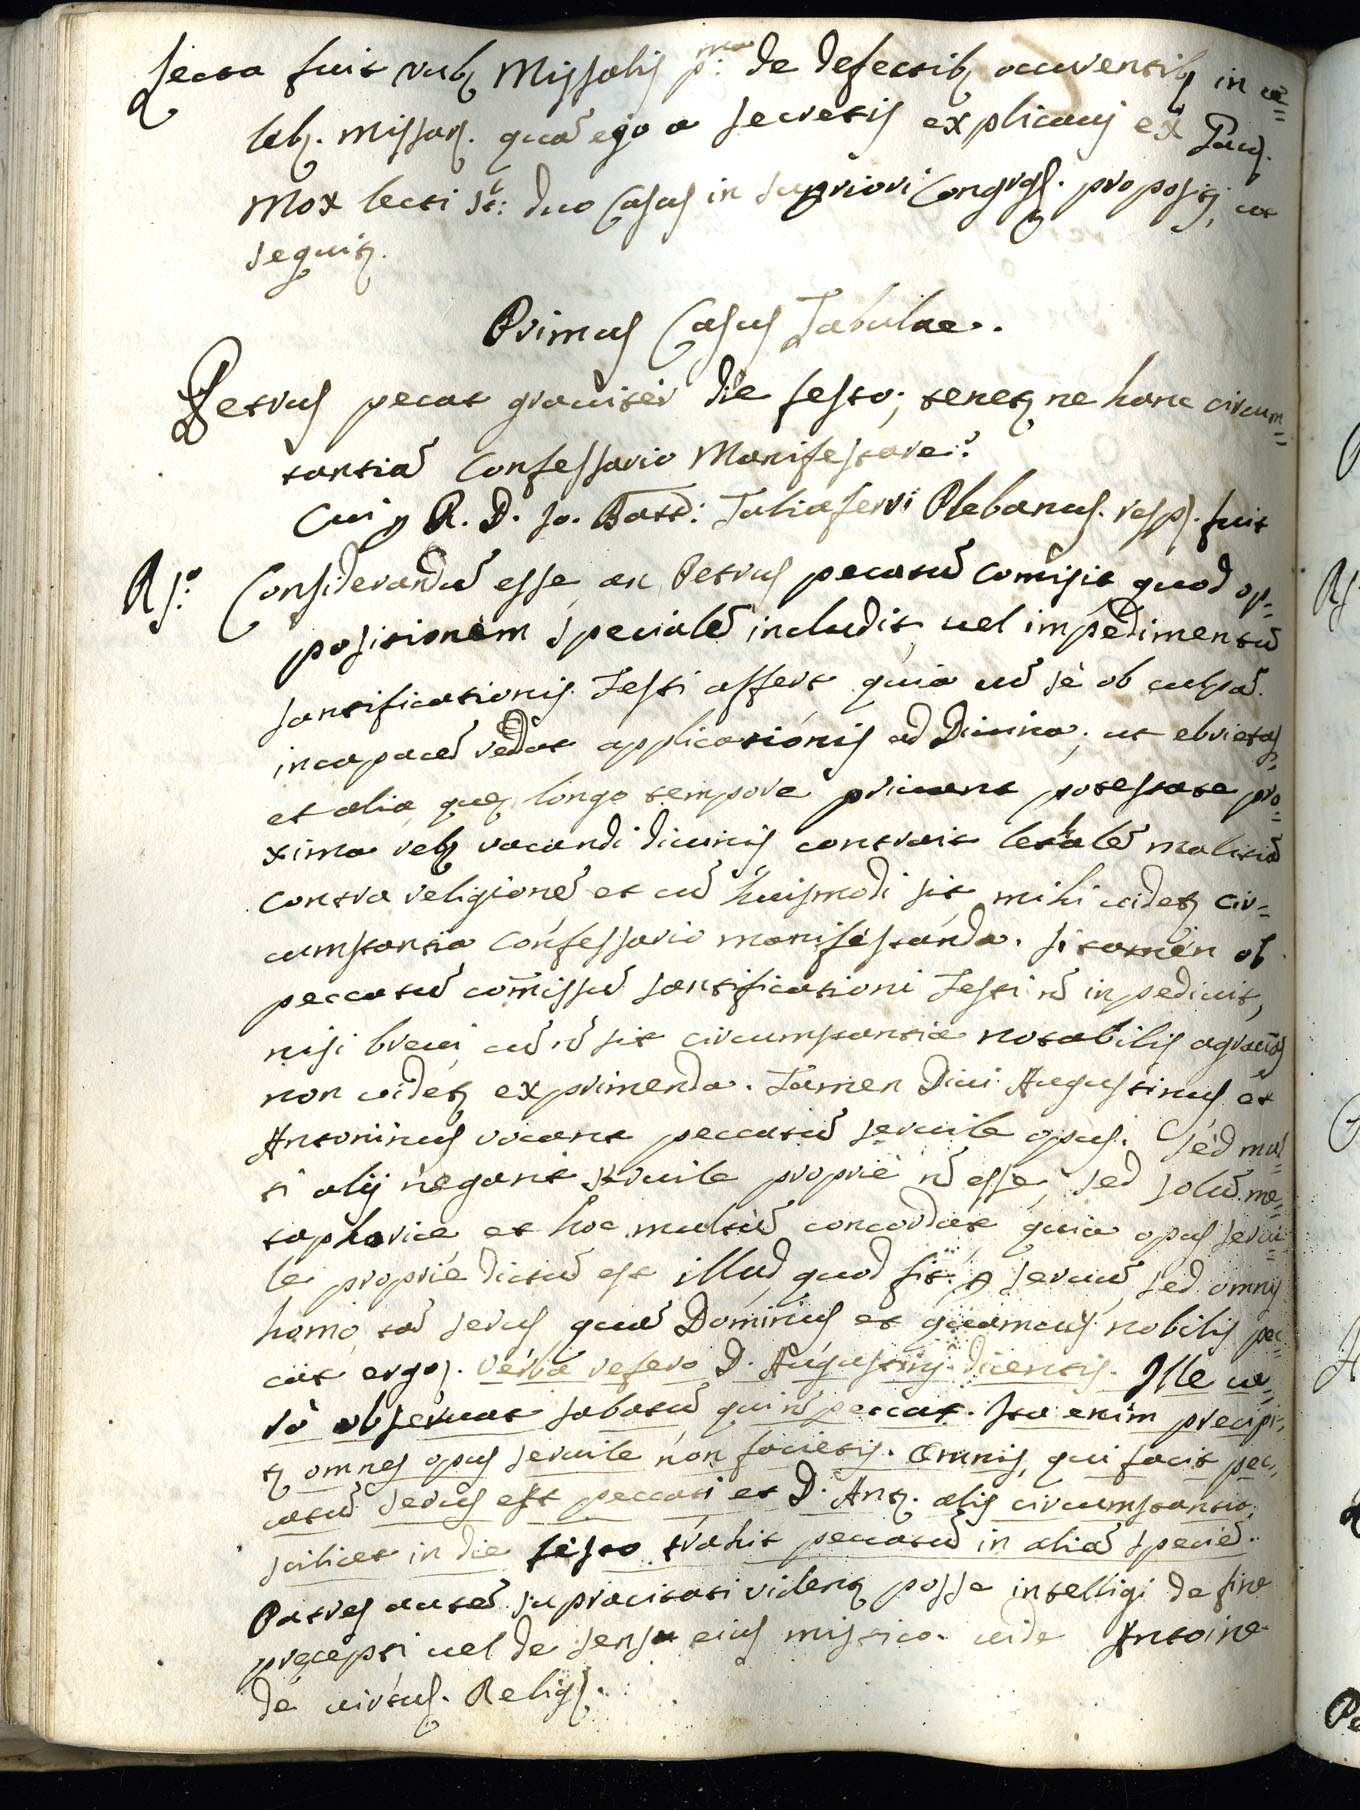 Lecta fuit rub. Missalis p.ma de defectib. occurentib. in ce=
leb. Missar. quā ego a secretis explicavi ex Gav.
Mox lecti st: duo Casus in supriori Congrg. propositi, ut
sequit.
Primus Casus Tabulae.
Petrus pecat graviter die festo; tenet. ne hanc circum=
tantiā Confessario Manifestare?
Cui R. D. Jo. Batt: Taliaferri Plebanus. resp. fuit
Rs.o Considerandū esse, an Petrus pecatū comisit quod op=
positionem specialē includit, vel impedimentū
santificationis Festi affert, quia cū sè ob culpā
incapacē reddat applicationis ad Divina; ut ebrietas,
et alia, quę longo tempore privant potestate pro=
xima reb. vacandi divinis contrait lethalē malitiā
contra religionē et cū huismodi sit, mihi videt. cir=
cumstantia Confessario manifestanda. si tamen ob
peccatū com̄issū santificationi Festi nō inpedivit,
nisi brevi, cū nō sit circumstantia notabilis agravās
non videt. exprimenda. Tamen Divi Augustinus et
Antoninus vocant peccatū servile opus. Sed mul=
ti alij negant servile propriè nō esse, sed solū me=
taphoricè, et hoc multū concordat, quia opus servi=
le propriè dictū est illud, quod fit. p servū, sed omnis
homo, tā servus quā Dominus et quamvis nobilis pec=
cat ergo. Verba refero D. Augustinij dicentis. Ille ve=
rò observat sabatū qui nō peccat. Ita enim precipi=
t. omnes opus servile non facietis. Omnis, qui facit pec=
catū servus est peccati et D. Ant. alijs circumstantia,
scilicet in die festo trahit peccatū in aliā speciē.
Patres autē supracitati vident. posse intelligi de fine
precepti vel de sensu eius mistico. vide Antoine
de virtut. Relig.